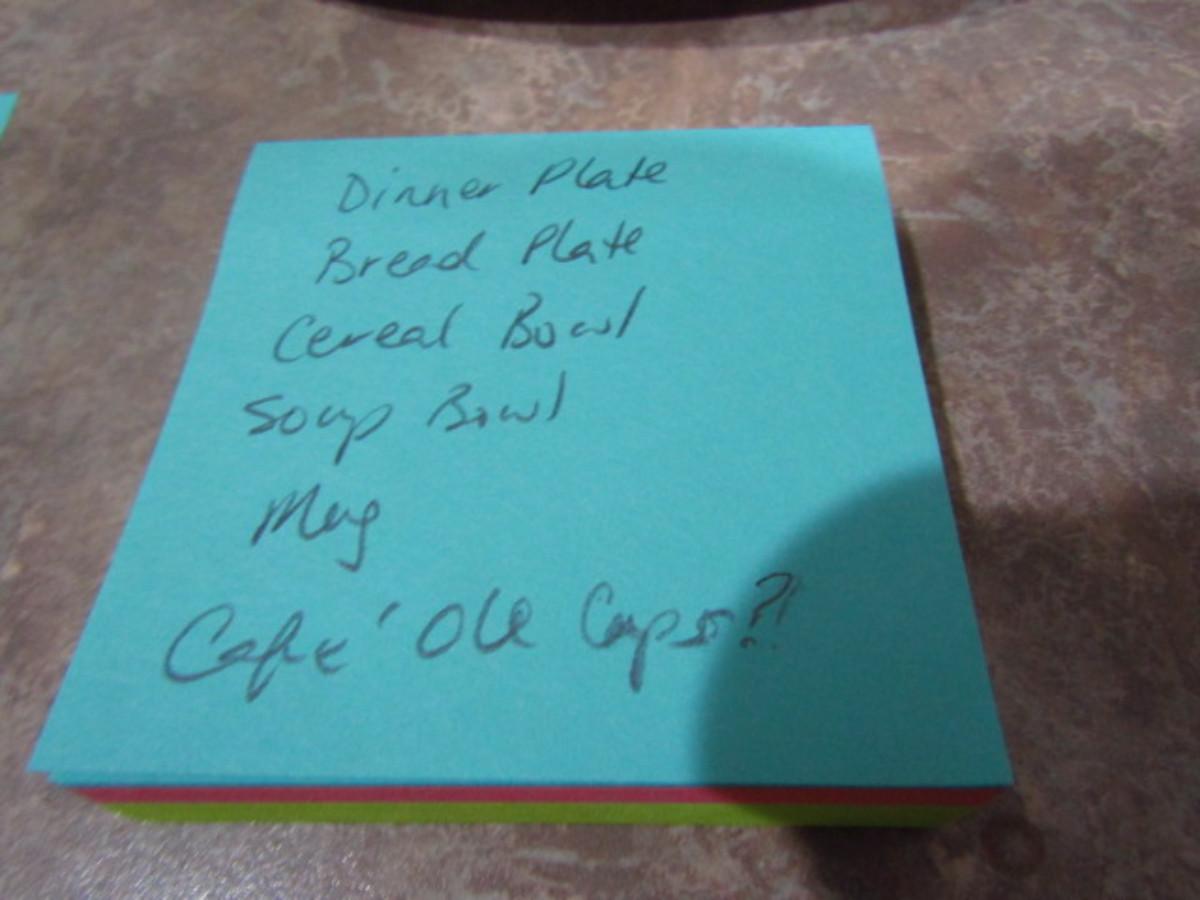 Dinner Plate
Bread Plate
Cereal Bowl
Soup Bowl
Mug
Cafe' Ole Cups?!